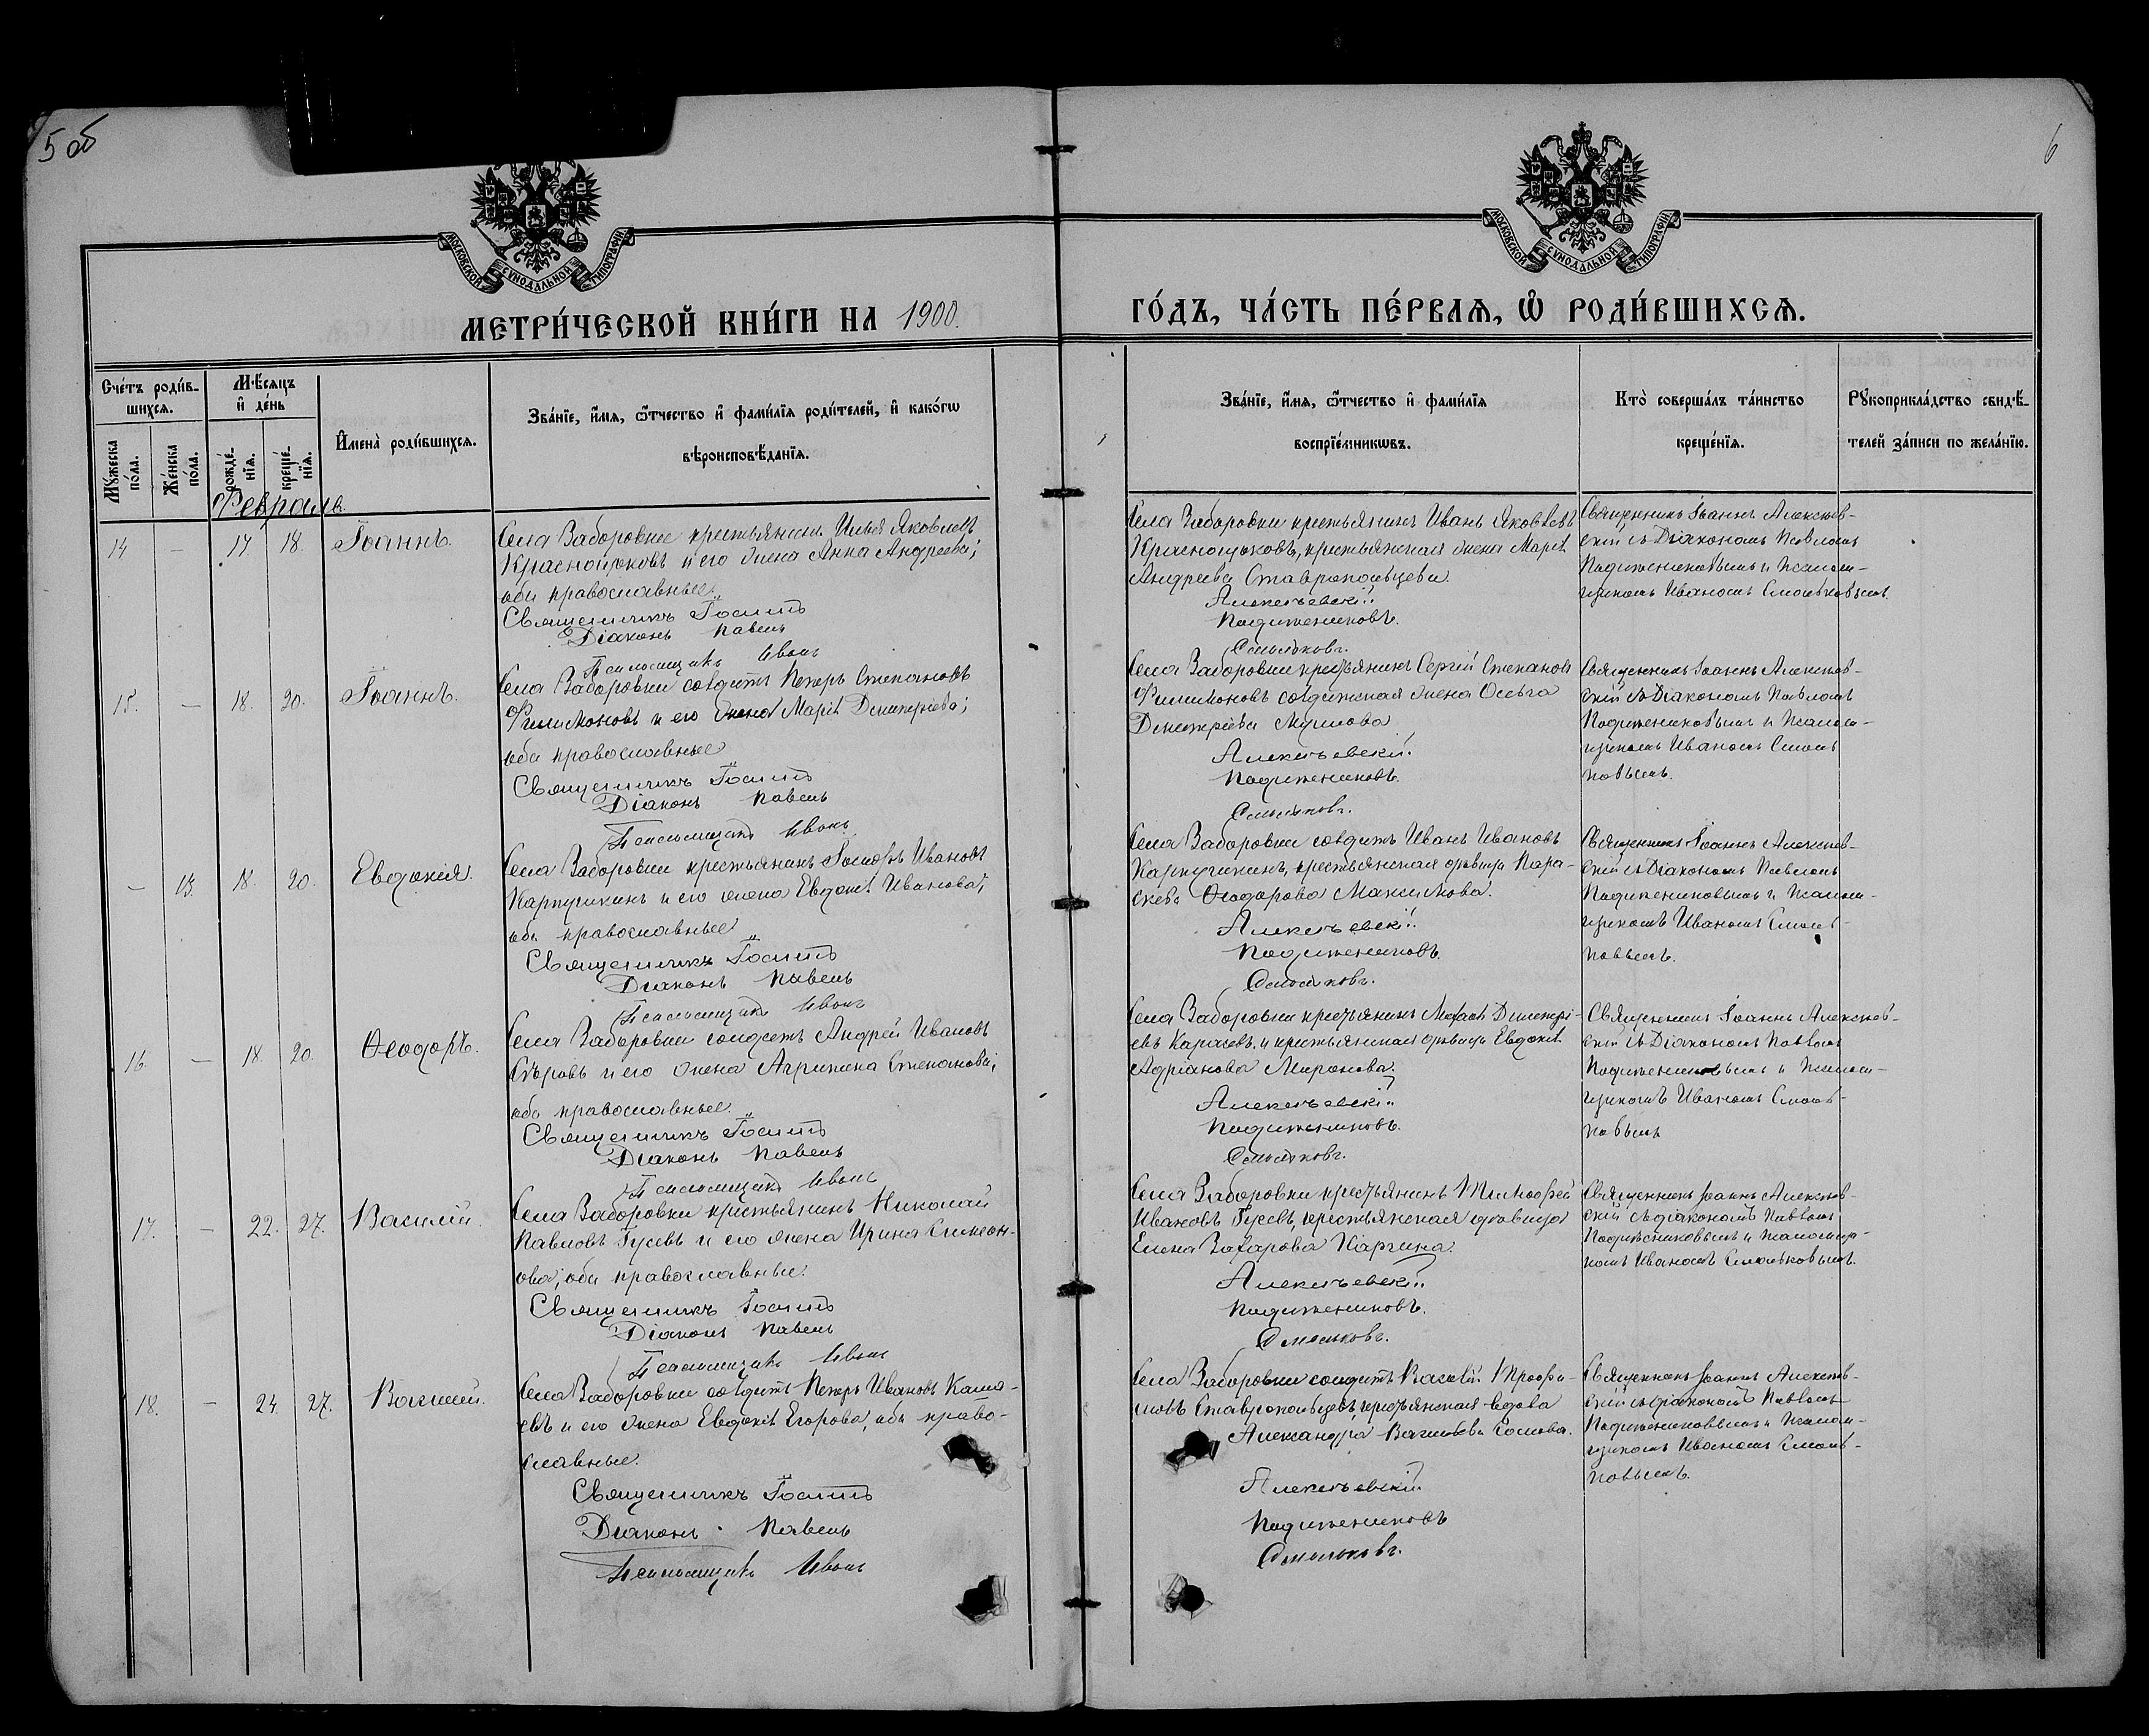 5 об
6
МОСКОВСКОЙ СѴНОДАЛЬНОЙ ТИПОГРАФІИ
МОСКОВСКОЙ СѴНОДАЛЬНОЙ ТИПОГРАФІИ
МЕТРИ́ЧЕСКОЙ КНИ́ГИ НА 1900.
ГО́ДЪ, ЧА́СТЬ ПЕ́РВАѦ, Ѿ РОДИ́ВШИХСѦ.
Сче́тъ роди́в-
шихсѧ.
Мѣ́сѧцъ
и҆ де́нь
Мꙋ́жеска
по́ла.
Же́нска
по́ла.
рожде́-
нїѧ.
креще́-
нїѧ.
И҆мена̀ роди́вшихсѧ.
Зва́нїе, и҆́мѧ, ѻ҆́тчество и҆ фами́лїѧ роди́телей, и҆ како́гѡ
вѣроисповѣ́данїѧ.
Зва́нїе, и҆́мѧ, ѻ҆́тчество и҆ фами́лїѧ
воспрїе́мникѡвъ.
Кто̀ соверша́лъ та́инство
креще́нїѧ.
Рꙋкоприкла́дство свидѣ́-
телей за́писи по жела́нїю.
Февраль
14 — 17. 18. Іоаннъ.
Села Заборовки крестьянинъ Илья Яковлевъ
Краснощоковъ и его жена Анна Андреева;
оба православные.
Священникъ Іоаннъ
Діаконъ Павелъ
Псаломщикъ Иванъ
Села Заборовки крестьянинъ Иванъ Яковлевъ
Краснощоковъ, крестьянская жена Марія
Андреева Ставропольцева.
Алексѣевскій
Подуженниковъ.
Смольковъ.
Священникъ Іоаннъ Алексѣев-
скій съ Діакономъ Павломъ
и Псалом-
щикомъ Иваномъ Смольковымъ.
15. — 18. 20. Іоаннъ.
Села Заборовки солдатъ Петръ Степановъ
Филимоновъ и его жена Марія Димитріева;
оба православные
Священникъ Іоаннъ
Діаконъ Павелъ
Псаломщикъ Иванъ
Села Заборовки крестьянинъ Сергій Степановъ
Филимоновъ солдатская жена Ольга
Димитріева
Алексѣевскій
Смольковъ.
Священникъ Іоаннъ Алексѣев-
скій съ Діакономъ Павломъ
и Псалом-
щикомъ Иваномъ Смоль-
ковымъ.
— 15. 18. 20. Евдокія.
Села Заборовки крестьянинъ Іосифъ Ивановъ
Карпушкинъ и его жена Евдокія Иванова;
оба православные
Священникъ Іоаннъ
Діаконъ Павелъ
Псаломщикъ Иванъ
Села Заборовки солдатъ Иванъ Ивановъ
Карпушкинъ, крестьянская дѣвица Пара-
скева Ѳеодорова Максимова.
Алексѣевскій
Смольковъ.
Священникъ Іоаннъ Алексѣев-
скій съ Діакономъ Павломъ
и Псалом-
щикомъ Иваномъ Смоль-
ковымъ.
16. — 18. 20. Ѳеодоръ.
Села Заборовки солдатъ Андрей Ивановъ
Сѣровъ и его жена Агрипина Степанова;
оба православные.
Священникъ Іоаннъ
Діаконъ Павелъ
Псаломщикъ Иванъ
Села Заборовки крестьянинъ Димитрі-
евъ и крестьянская дѣвица Евдокія
Адріанова Миронова.
Алексѣевскій
Смольковъ.
Священникъ Іоаннъ Алексѣев-
скій съ Діакономъ Павломъ
и Псалом-
щикомъ Иваномъ Смоль-
ковымъ
17. — 22. 27. Василій.
Села Заборовки крестьянинъ Николай
Павловъ Гусевъ и его жена Ирина Симеон-
ова; оба православные.
Священникъ Іоаннъ
Діаконъ Павелъ
Псаломщикъ Иванъ
Села Заборовки крестьянинъ Тимофей
Ивановъ Гусевъ, крестьянская дѣвица
Елена Захарова Каргина.
Алексѣевскій
Смольковъ.
Священникъ Іоаннъ Алексѣев-
скій съ діакономъ Павломъ
и псаломщи-
комъ Иваномъ Смольковымъ.
18. — 24. 27. Василій.
Села Заборовки солдатъ Петръ Ивановъ
и его жена Евдокія Егорова, оба право-
славные.
Священникъ Іоаннъ
Діаконъ Павелъ
Псаломщикъ Иванъ
Села Заборовки солдатъ Василій Трофи-
мовъ Ставропольцевъ, крестьянская вдова
Александра Васильева
Алексѣевскій
Смольковъ.
Священникъ Іоаннъ Алексѣев-
скій съ діакономъ Павломъ
и Псалом-
щикомъ Иваномъ Смоль-
ковымъ.